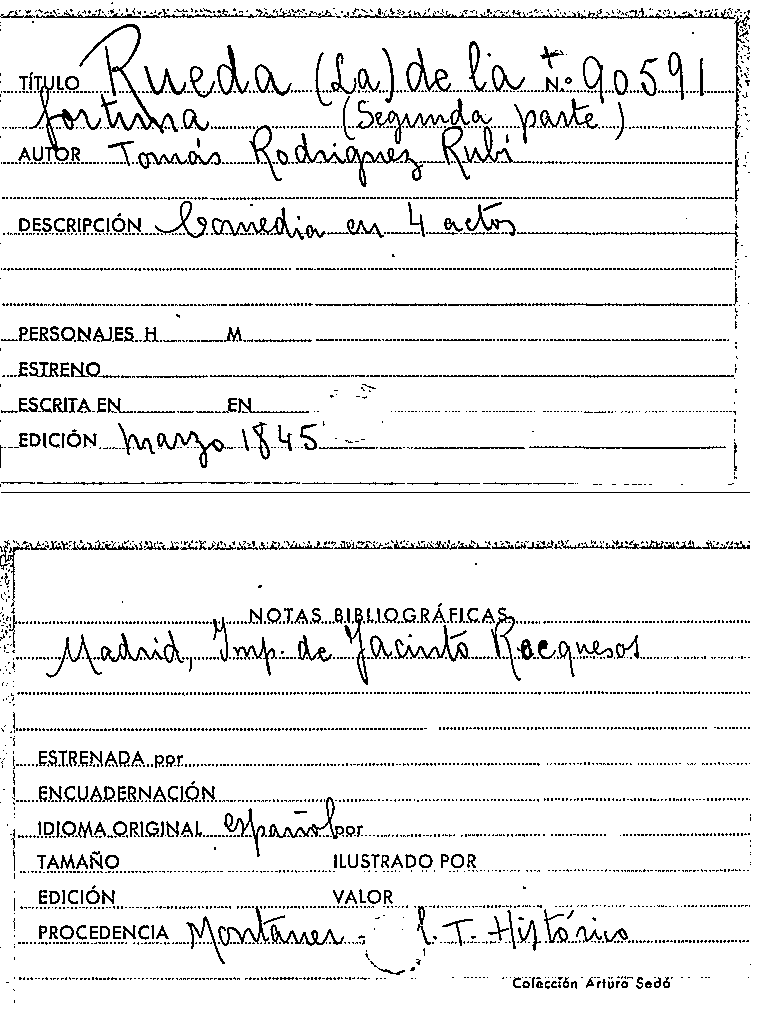 TÍTULO Rueda (La) de la + N.º 90591
fortuna (Segunda parte)
AUTOR Tomás Rodriguez Rubí
DESCRIPCIÓN Comedia en 4 actos
PERSONAJES H M
ESTRENO
ESCRITA EN EN
EDICIÓN marzo 1845
NOTAS BIBLIOGRÁFICAS
Madrid, Imp. de Jacinto
ESTRENADA por
ENCUADERNACIÓN
IDIOMA ORIGINAL español por
TAMAÑO ILUSTRADO POR
EDICIÓN VALOR
PROCEDENCIA Montaner - T. Histórico
Colección Arturo Sedó